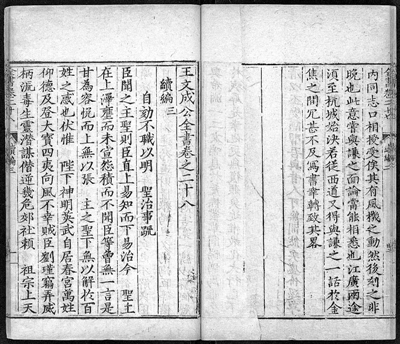 內同志口相授受俟其有風機之動然後刻之非
晚也此意嘗與謙之面論當能相悉也江廣兩途
須至杭城始決若從西道又得與謙之一話於金
焦之間冗甚不及寫書幸轉致其畧
王文成公全書卷之二十八
續編三
自劾不職以明 聖治事疏
臣聞之主聖則臣直上易知而下易治今 聖主
在上澤壅而未宣怨積而不聞臣等曾無一言是
甘為容悅而上無以張 主之聖下無以解於百
姓之惑也伏惟 陛下神明英武自居春宮萬姓
仰德及登大寶四夷向風不幸賊臣劉瑾竊弄威
柄流毒生靈潛謀僭逆幾危郊社賴 祖宗上天